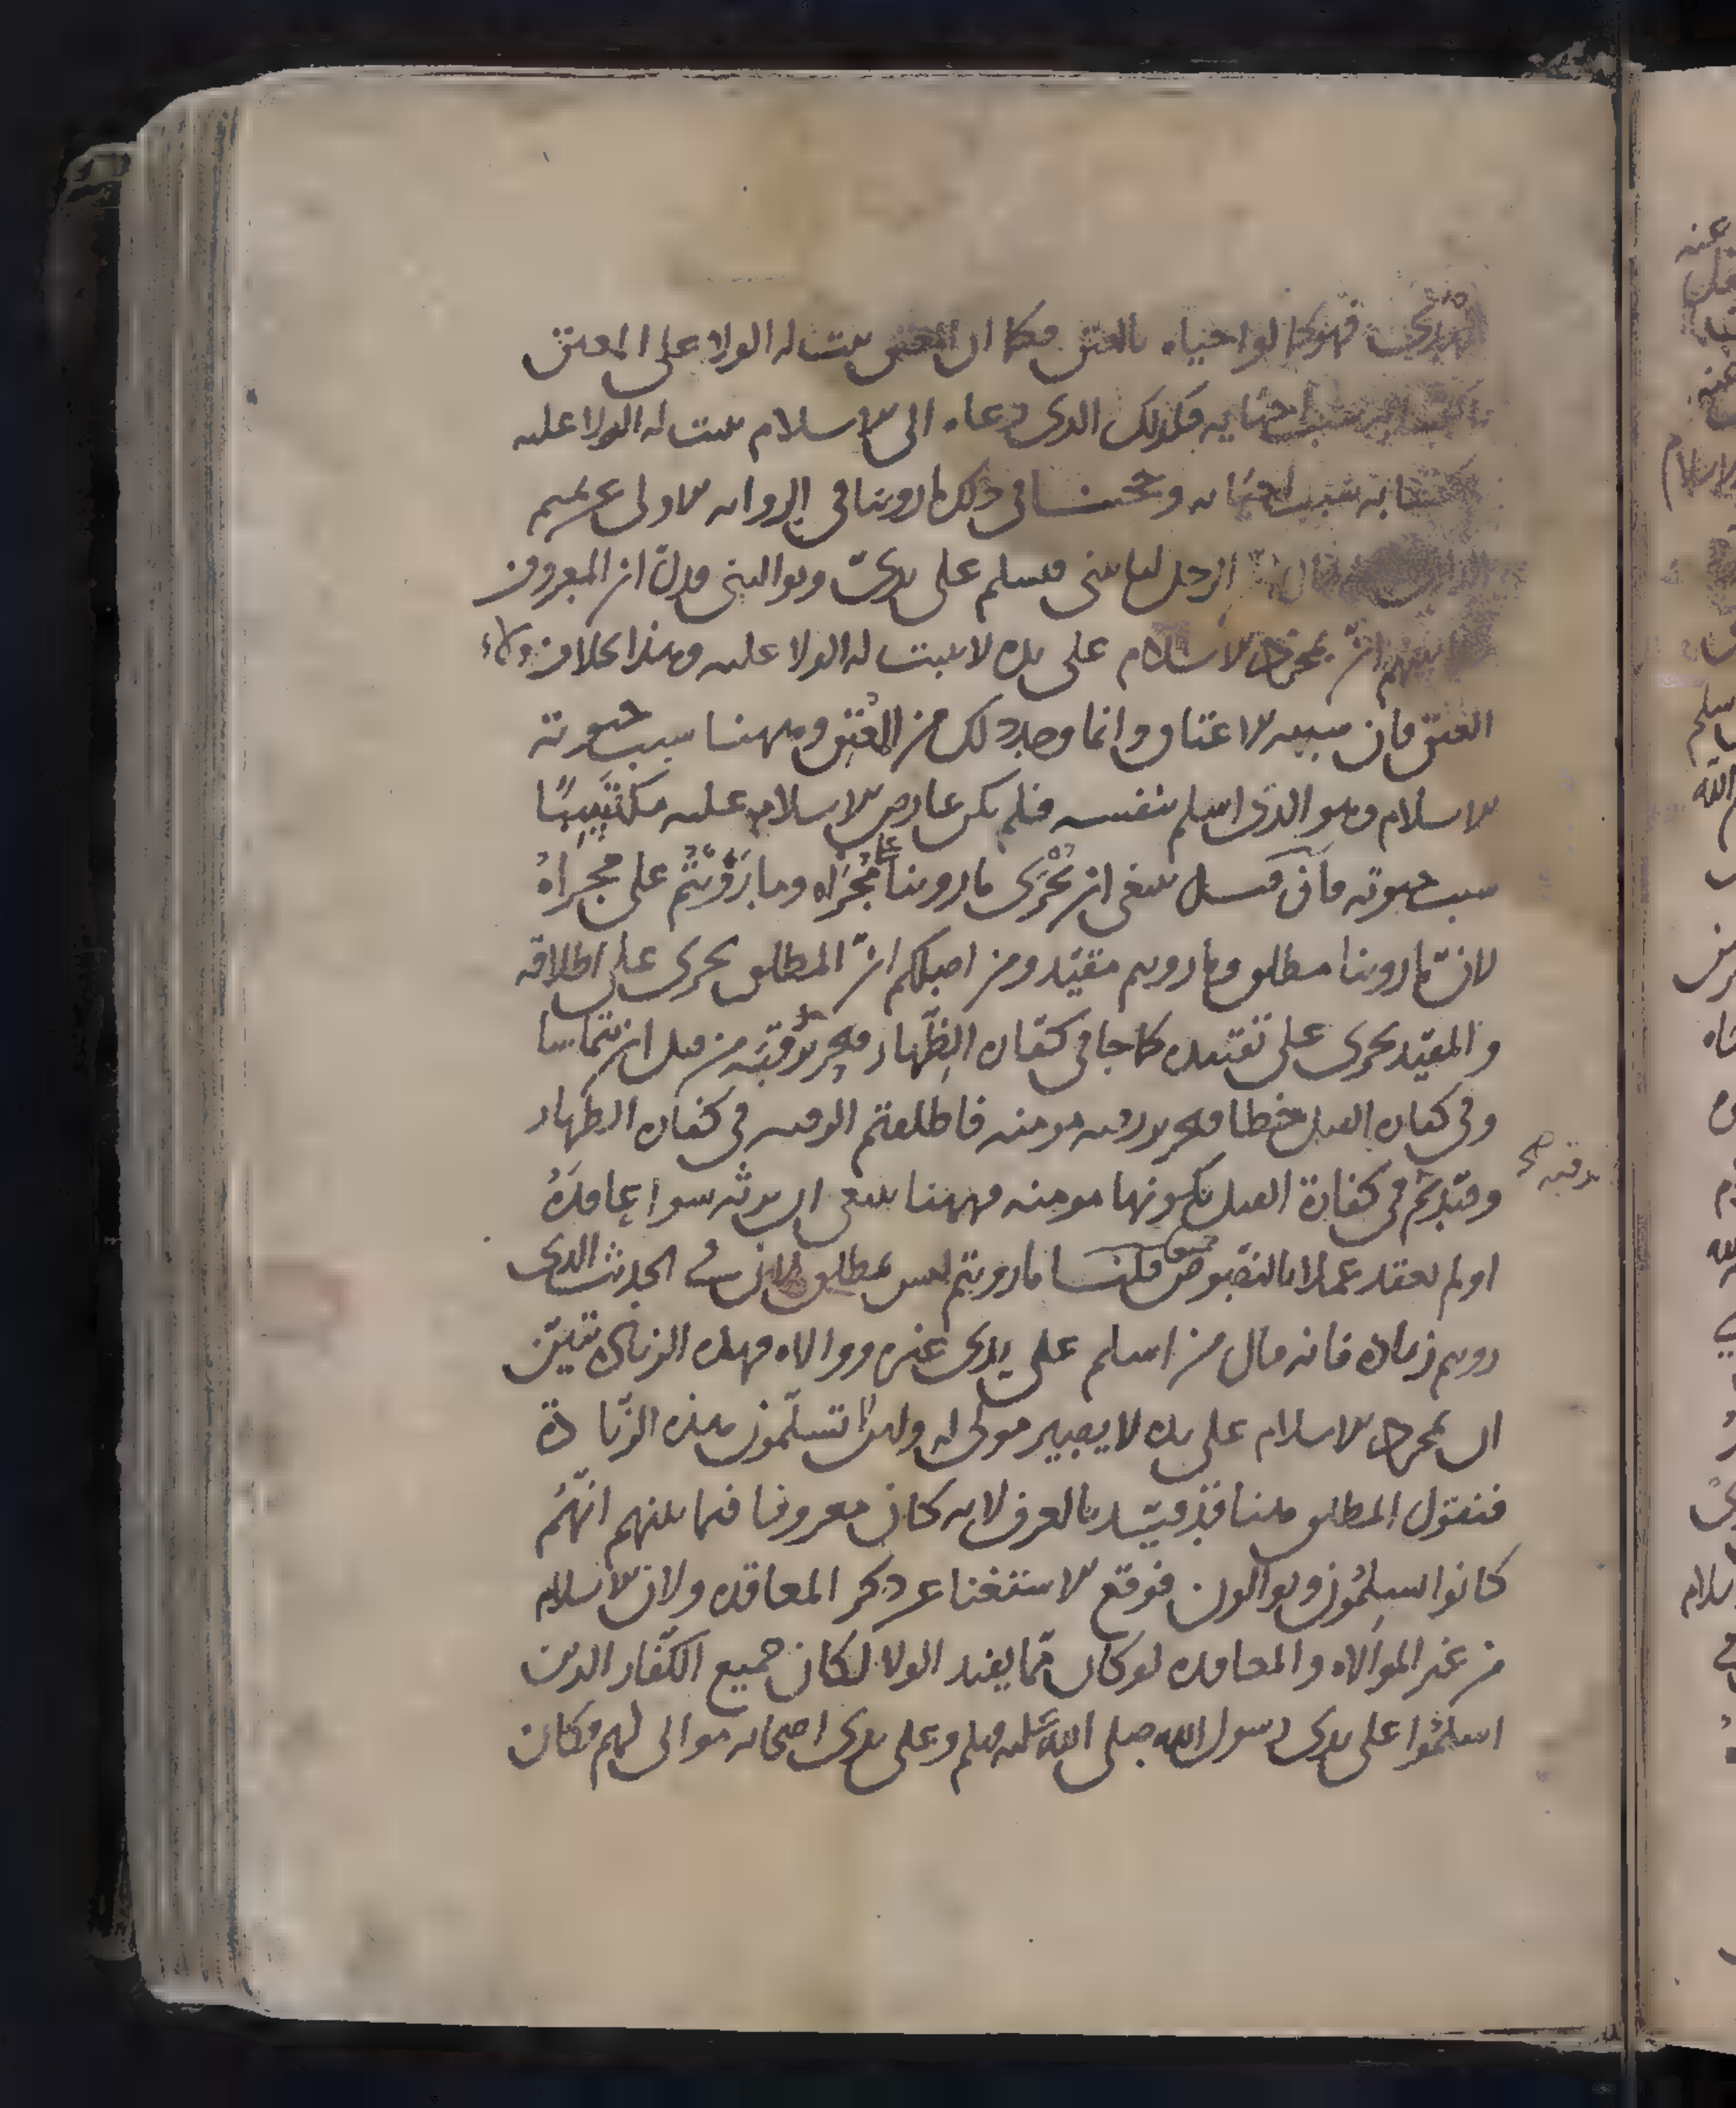 فهو كما لو احياه بالعتق فكما ان المعتق يثبت له الولا على المعتق
بسبب احيايه فكذلك الذى دعاه الى الاسلام يثبت له الولا عليه
بسبب احيايه وحجتنا فى ذلك ما روينا فى الرواية الاولى عن تميم
قال ان الرجل لياتينى فيسلم على يدى ويوالينى فدل ان المعروف
بينهم ان بمجرد الاسلام على يده لا يثبت له الولا عليه وهذا بخلاف ولاء
العتق فان سببه الاعتاق وانما وجد ذلك من المعتق وههنا سبب حيوته
الاسلام وهو الذى اسلم بنفسه فلم يكن عارض الاسلام عليه مكتسبا
سبب حيوته فان قيل ينبغى ان يجرى ما روينا على مجراه وما رويتم على مجراه
لان ما روينا مطلق وما رويتم مقيد ومن اصلكم ان المطلق يجرى على اطلاقه
والمقيد يجرى على تقييده كما جا فى كفارة الظهار فتحرير رقبة من قبل ان يتماسا
وفى كفارة القتل خطا فتحرير رقبة مومنة فاطلقتم الرقبة فى كفارة الظهار
رقبة صح
وقيدتم فى كفارة القتل بكونها مومنة فههنا ينبغى ان يرثه سوا عاقده
او لم يعقد عملا بالنصوص قلنا ما رويتم ليس بمطلق لان فى الحديث الذى
رويتم زيادة فانه قال من اسلم على يدى غيره ووالاه فهذه الزيادة تبين
ان بمجرد الاسلام على يده لا يصير مولى له ولين تسلمون هذه الزيادة
فنقول المطلق ههنا قد قيد بالعرف لانه كان معروفا فيما بينهم انهم
كانوا يسلمون ويوالون فوقع الاستغنا عن ذكر المعاقدة ولان الاسلام
من غير الموالاة والمعاقدة لو كان مما يفيد الولا لكان جميع الكفار الذين
اسلموا على يدى رسول الله صلى الله عليه وسلم وعلى يدى اصحابه موالى لهم فكان